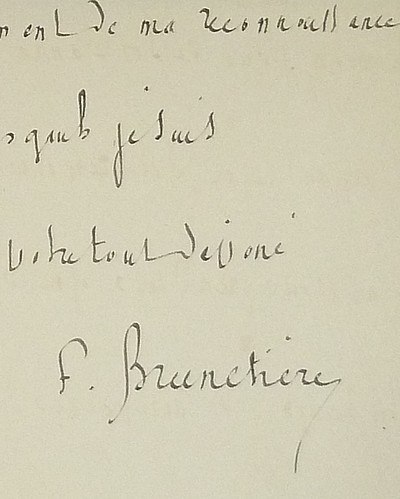 ment de ma reconnaissance
je suis
votre tout dévoué
F. Brunetière